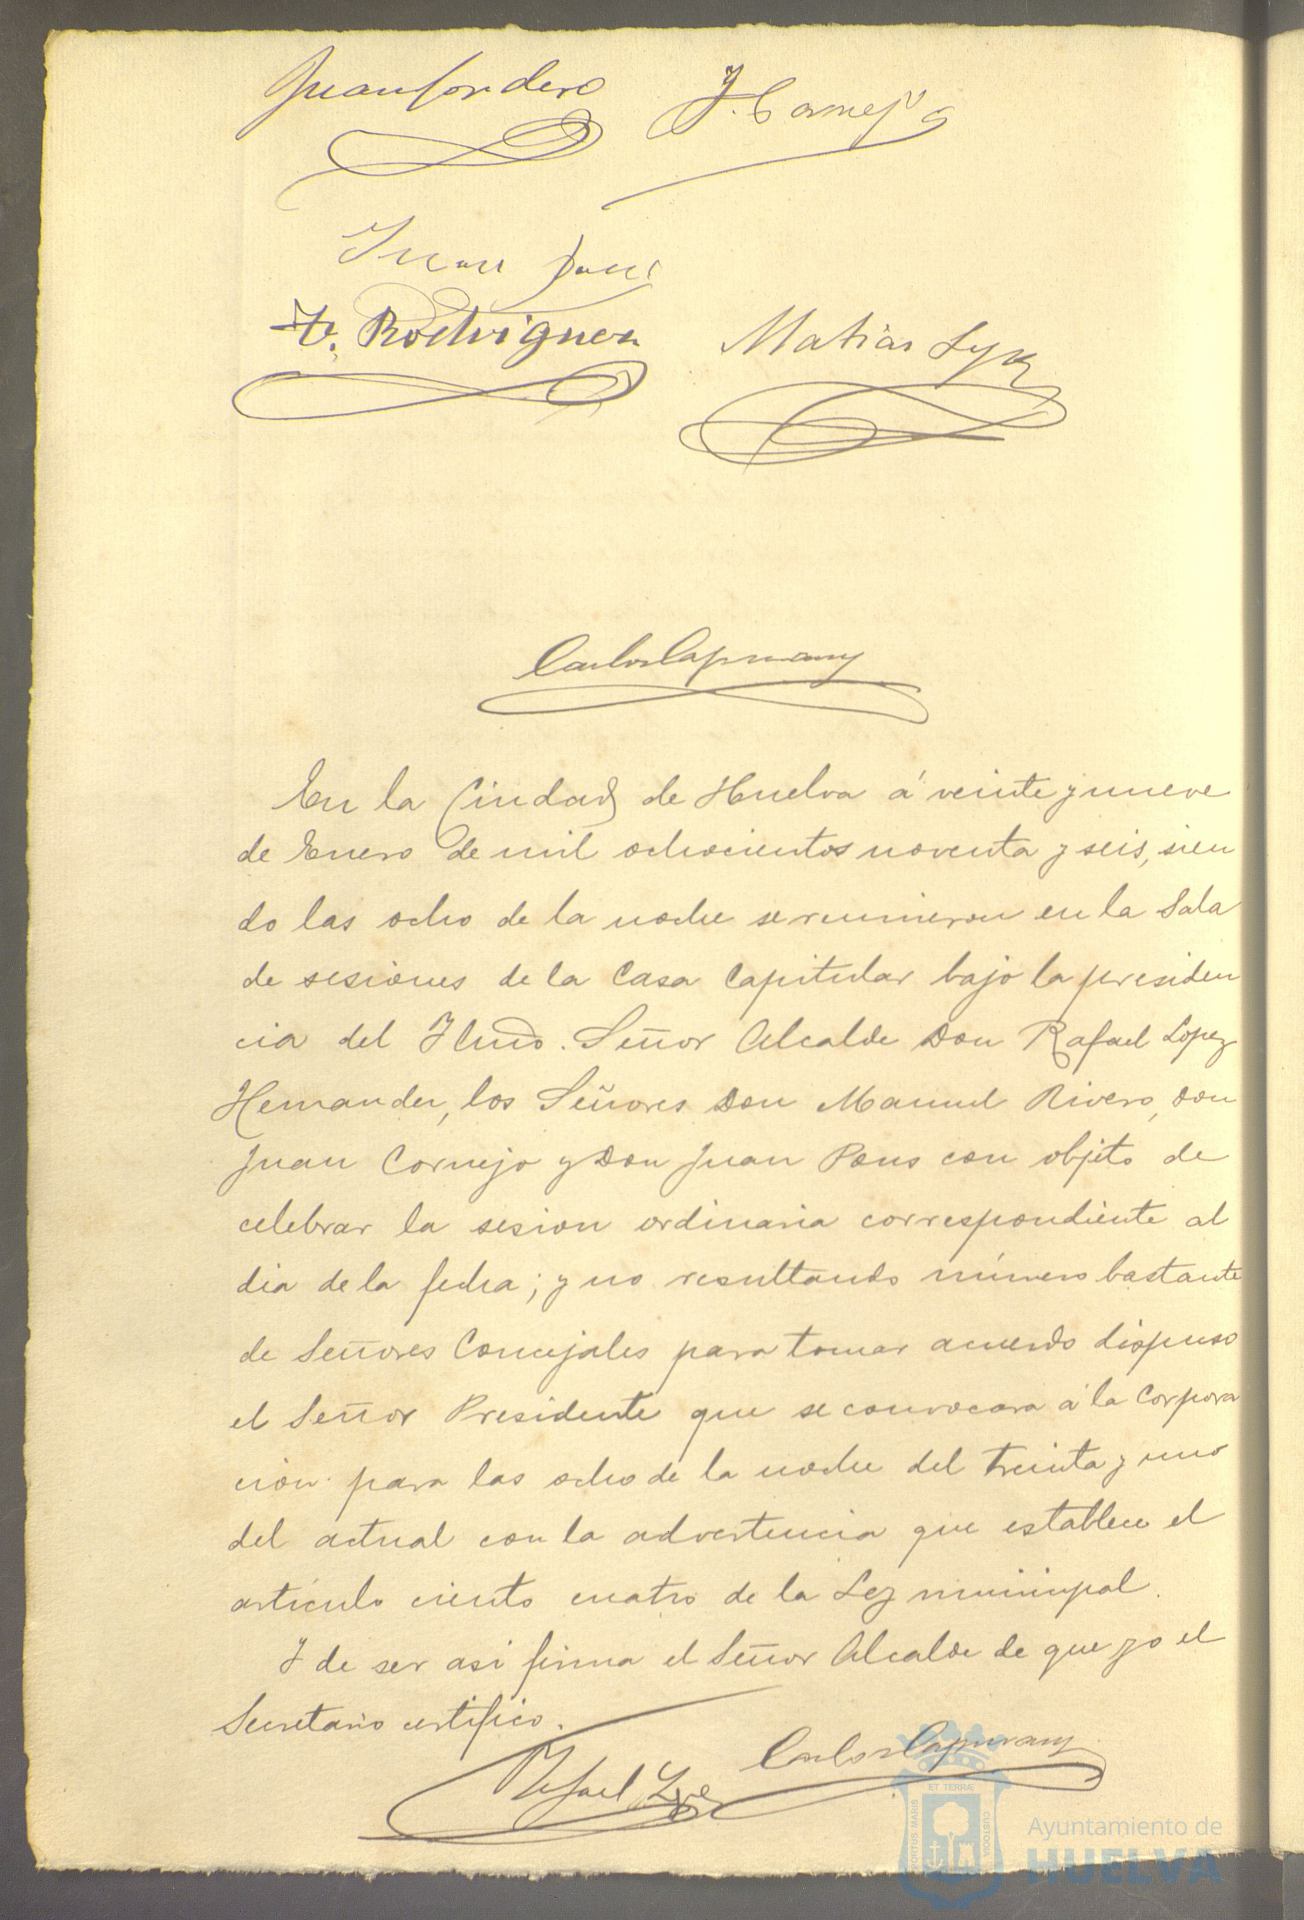 Juan Cordero J. Cornejo
Juan Pons
V. Rodriguez Matias
Carlos Capmany
En la Ciudad de Huelva á veinte y nueve
de Enero de mil ochocientos noventa y seis, sien
do las ocho de la noche se reunieron en la Sala
de sesiones de la Casa Capitular bajo la presiden
cia del Ilmo. Señor Alcalde Don Rafael Lopez
Hernandez, los Señores Don Manuel Rivero, Don
Juan Cornejo y Don Juan Pons con objeto de
celebrar la sesion ordinaria correspondiente al
dia de la fecha; y no resultando número bastante
de Señores Concejales para tomar acuerdo dispuso
el Señor Presidente que se convocara á la Corpora
ción para las ocho de la noche del treinta y uno
del actual con la advertencia que establece el
artículo ciento cuatro de la Ley municipal.
Y de ser asi firma el Señor Alcalde de que yo el
Secretario certifico.
Rafael Lopez Carlos Capmany
ET TERRÆ
PORTUS MARIS CUSTODIA
Ayuntamiento de
HUELVA